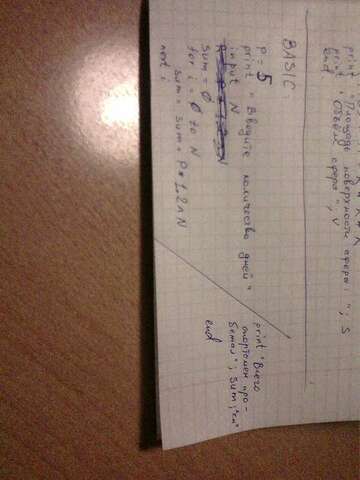 print "Площадь поверхности сферы: "; S
print "Объём сферы", V
end
BASIC.
P = 5
print "Введите количество дней"
input N
sum = 0
for i = 0 to N
sum = sum + P * 1.2 ^ N
next i
print "Всего
спортсмен про-
бежал"; sum; "км"
end